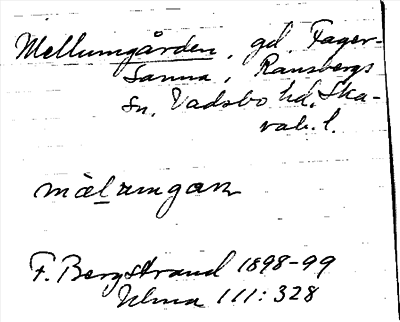 Mellumgården, gd, Fager-
sanna, Ransbergs
sn, Vadsbo hd, Ska-
rab. l.
mælumgaɳ
F. Bergstrand 1898-99
Ulma 111:328